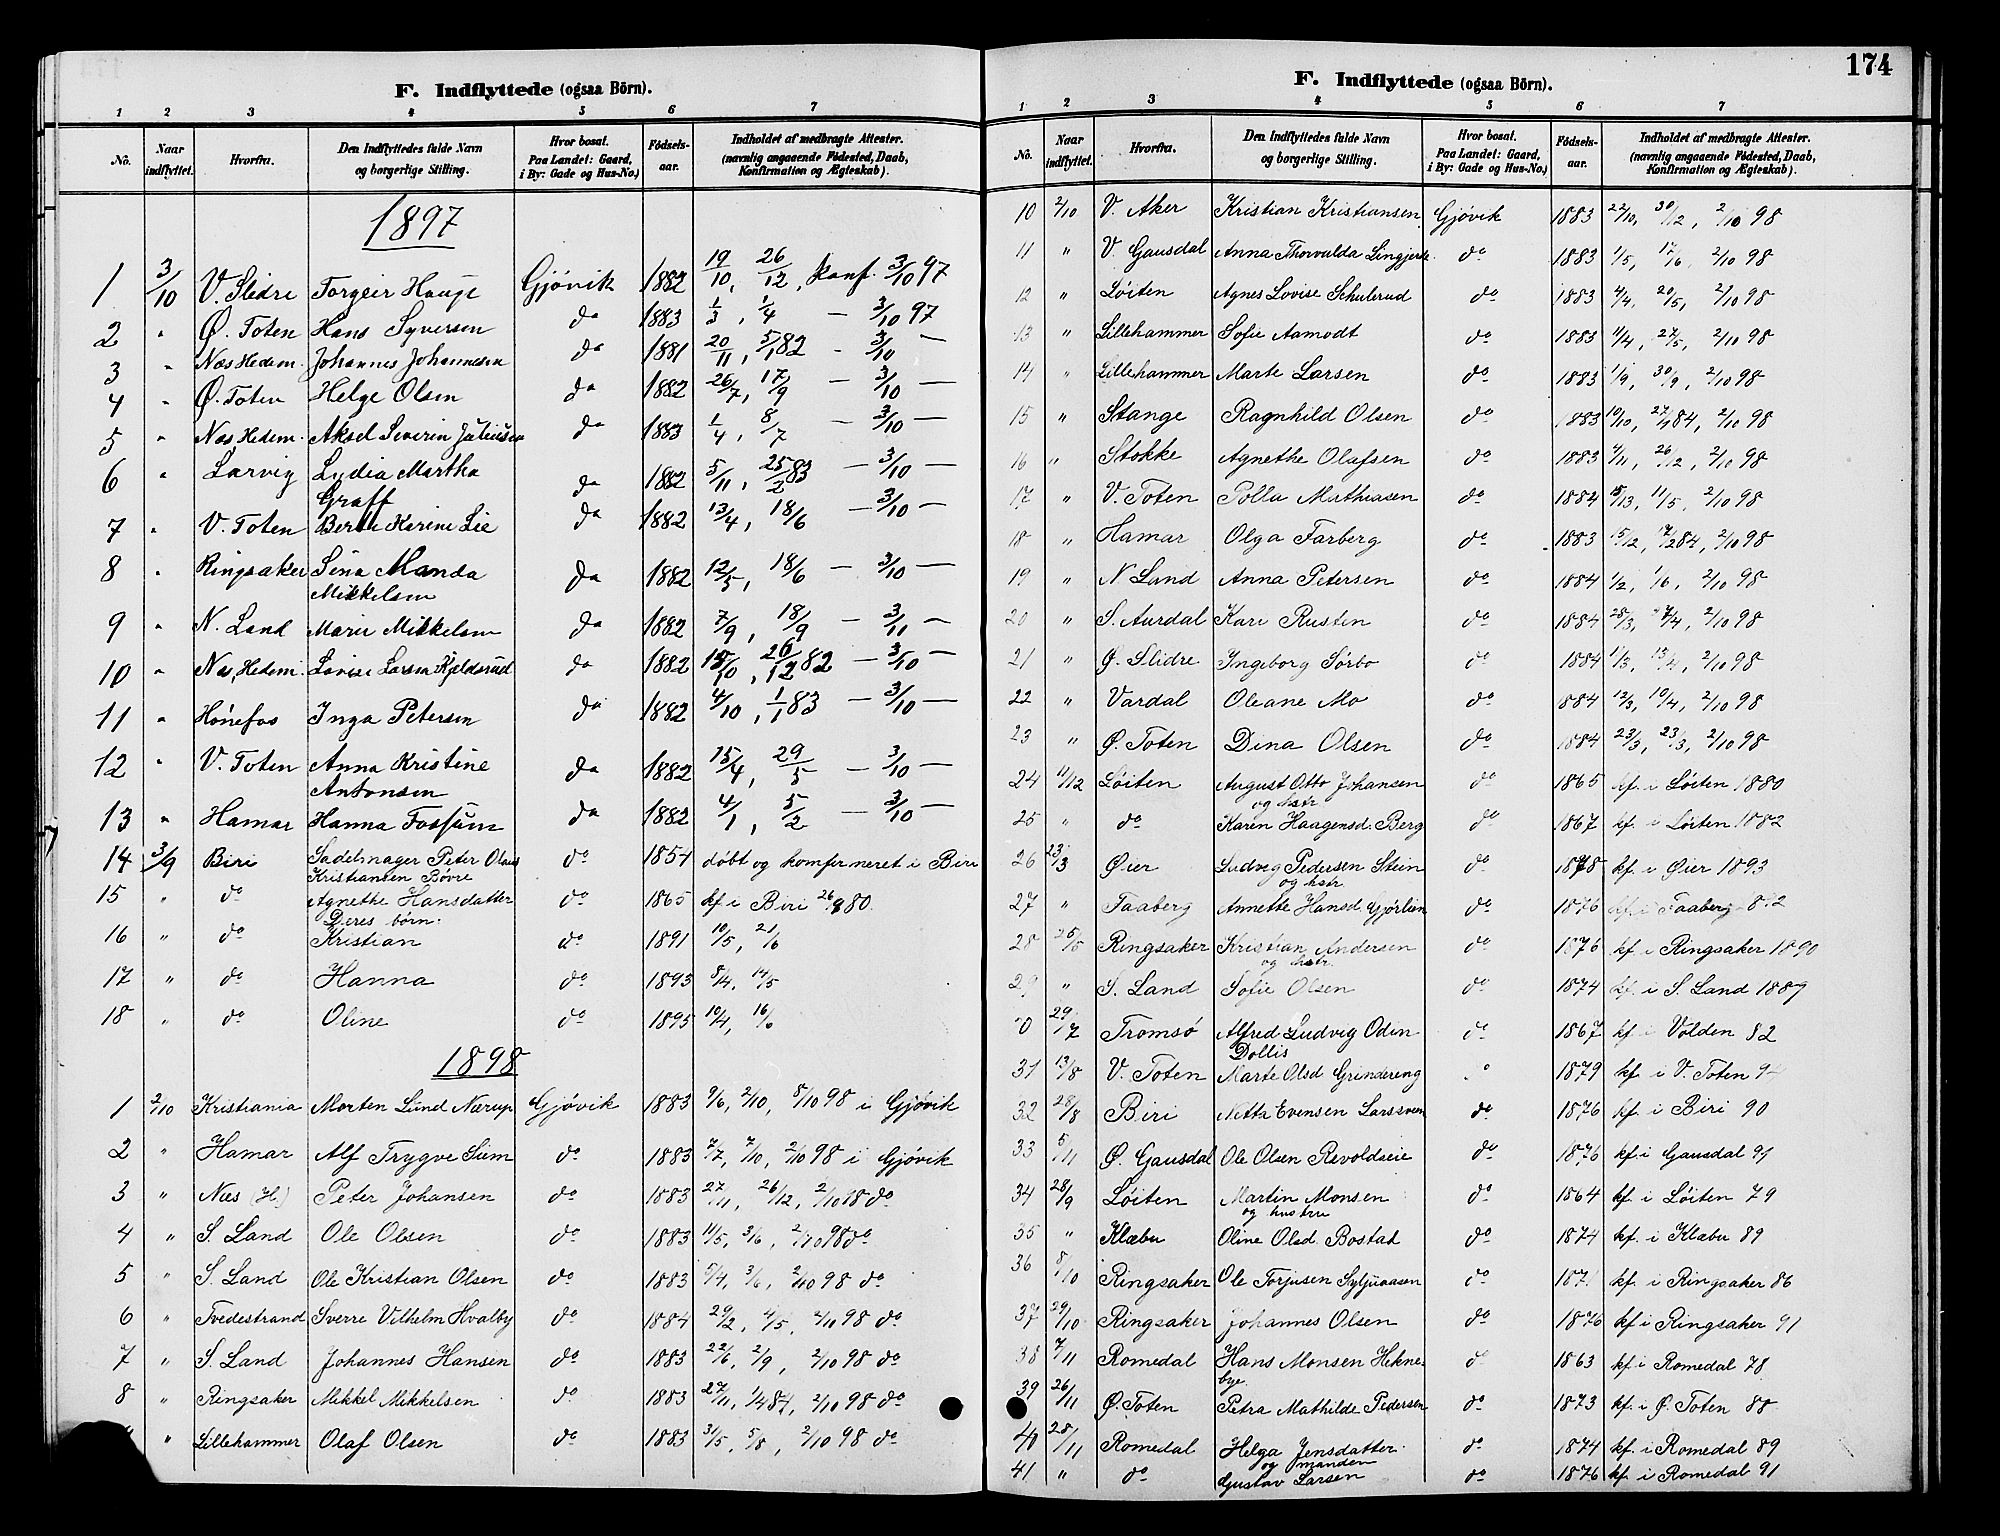 F. Indflyttede (ogsaa Börn).
1 2 3 4 5 6 7
No. Naar indflyttet. Hvorfra. Den Indflyttedes fulde Navn og borgerlige Stilling. Hvor bosat. Paa Landet: Gaard, i By: Gade og Hus-No.) Födsels-aar. Indholdet af medbragte Attester. (navnlig angaaende Födested, Daab, Konfirmation og Ægteskab).
1897
1 3/10 V. Slidre Torgeir Hauge Gjövik 1882 19/10, 26/12, konf. 3/10 97
2 " Ø. Toten Hans Syversen do 1883 1/3, 1/4 — 3/10 97
3 " Næs Hedem. Johannes Johannesen do 1881 20/11, 5/1 82 - 3/10 —
4 " Ø. Toten Helge Olsen do 1882 26/7, 17/9 — 3/10 —
5 " Næs Hedem. Aksel Severin Juliussen do 1883 1/4, 8/7 — 3/10 —
6 " Larvig Lydia Martha do 1882 5/11, 25/2 83 — 3/10 —
Graff
7 " V. Toten Berte Karine Lie do 1882 13/4, 18/6 — 3/10 —
8 " Ringsaker Sina Manda do 1882 12/5, 18/6 — 3/10 —
Mikkelsen
9 " N. Land Marie Mikkelsen do 1882 7/9, 18/9 — 3/11 —
10 " Næs, Hedem. Lovise Larsen Kjeldsrud do 1882 15/10, 26/12 82 — 3/10 —
11 " Hönefos Inga Petersen do 1882 4/10, 1/1 83 — 3/10 —
12 " V. Toten Anna Kristine do 1882 15/4, 29/5 — 3/10 —
Antonsen
13 " Hamar Hanna Fossum do 1882 4/1, 5/2 — 3/10 —
14 3/9 Biri Sadelmager Peter Olaus do 1854 döbt og komfermeret i Biri
Kristiansen Bövre
15 " do Agnethe Hansdatter do 1865 kf i Biri 26/9 80.
Deres börn.
16 " do Kristian do 1891 10/5, 21/6
17 " do Hanna do 1893 8/4, 14/5
18 " do Oline do 1895 10/4, 16/6
1898
1 2/10 Kristiania Morten Lund Nærup Gjövik 1883 9/6, 2/10, 8/10 98 i Gjövik
2 " Hamar Alf Trygve Sum do 1883 7/7, 7/10, 2/10 98 i Gjövik
3 " Næs (H.) Peter Johansen do 1883 27/11, 26/12, 2/10 98 do
4 " S. Land Ole Olsen do 1883 11/5, 3/6, 2/10 98 do
5 " S. Land Ole Kristian Olsen do 1883 5/4, 3/6, 2/10 98 do
6 " Tvedestrand Sverre Vilhelm Hvalby do 1884 29/2, 4/5, 2/10 98 do
7 " S. Land Johannes Hansen do 1883 22/6, 2/9, 2/10 98 do
8 " Ringsaker Mikkel Mikkelsen do 1883 27/11, 1/4 84, 2/10 98 do
" Lillehammer Olaf Olsen do 1883 31/5, 5/8, 2/10 98 do
174
F. Indflyttede (ogsaa Börn).
1 2 3 4 5 6 7
No. Naar indflyttet. Hvorfra. Den Indflyttedes fulde Navn og borgerlige Stilling. Hvor bosat. Paa Landet: Gaard, i By: Gade og Hus-No.) Födsels-aar. Indholdet af medbragte Attester. (navnlig angaaende Födested, Daab, Konfirmation og Ægteskab).
10 2/10 V. Aker Kristian Kristiansen Gjövik 1883 22/10, 30/12, 2/10 98
11 " V. Gausdal Anna Thorvalda Lingjerde do 1883 1/5, 17/6, 2/10 98
12 " Löiten Agnes Lovise Schulerud do 1883 4/4, 20/5, 2/10 98
13 " Lillehammer Sofie Aamodt do 1883 11/4, 27/5, 2/10 98
14 " Lillehammer Marte Larsen do 1883 1/9, 30/9, 2/10 98
15 " Stange Ragnhild Olsen do 1883 10/10, 27/1 84, 2/10 98
16 " Stokke Agnethe Olafsen do 1883 4/11, 26/12, 2/10 98
17 " V. Toten Polla Mathiasen do 1884 15/13, 11/5, 2/10 98
18 " Hamar Olga Farberg do 1883 15/12, 17/2 84, 2/10 98
19 " N Land Anna Petersen do 1884 1/2, 1/6, 2/10 98
20 " S. Aurdal Kari Rusten do 1884 28/3, 4, 2/10 98
21 " Ø. Slidre Ingeborg Sörbo do 1884 11/3, 13/4, 2/10 98
22 " Vardal Oleane Mo do 1884 12/3, 10/4, 2/10 98
23 " Ø. Toten Dina Olsen do 1884 23/3, 23/3, 2/10 98
24 11/12 Löiten August Otto Johansen do 1865 kf. i Löiten 1880
og hstr
25 " do Karen Haagensd. Berg do 1867 kf. i Löiten 1882
26 23/3 Öier Ludvig Pedersen Stein do 1878 kf. i Öier 1893
og hstr
27 " Faaberg Annette Hansd. Gjörlien do 1876 kf. i Faaberg
28 25/5 Ringsaker Kristian Andersen do 1876 kf. i Ringsaker 1890
og hstr.
29 " S. Land Sofie Olsen do 1874 kf. i S. Land 1889
0 29/7 Tromsö Alfred Ludvig Odin do 1867 kf. i Volden 82
Dollis
31 13/8 V. Toten Marte Olsd Grindereng 1879 kf. i V. Toten
32 28/8 Biri Netta Evensen Larssveen do 1876 kf. i Biri 90
33 5/11 Ø. Gausdal Ole Olsen Revoldseie do 1876 kf. i Gausdal 91
34 28/9 Löiten Martin Monsen do 1864 kf. i Löiten 79
og hustru
35 " Klæbu Oline Olsd. Bostad do 1874 kf. i Klæbu 89
36 8/10 Ringsaker Ole Torjusen Syljuaasen do 1871 kf. i Ringsaker 86
37 29/10 Ringsaker Johannes Olsen do 1876 kf i Ringsaker 91
38 7/11 Romedal Hans Monsen Hekne- do 1863 kf. i Romedal 78
bye.
39 26/11 Ø. Toten Petra Mathilde Pedersen do 1873 kf. i Ø. Toten 88
40 28/11 Romedal Helga Jensdatter do 1874 kf. i Romedal 89
og manden
41 " do Gustav Larsen do 1876 kf. i Romedal 91